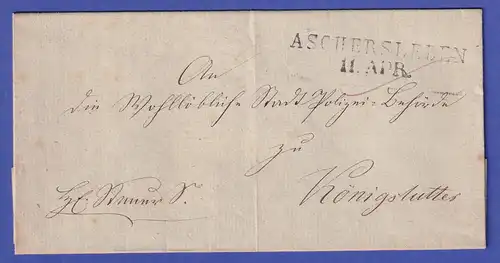 ASCHERSLEBEN
11. APR.
An
die Wohllöbliche Stadt Polizei-Behörde
zu
Königslutter
Steuer S.